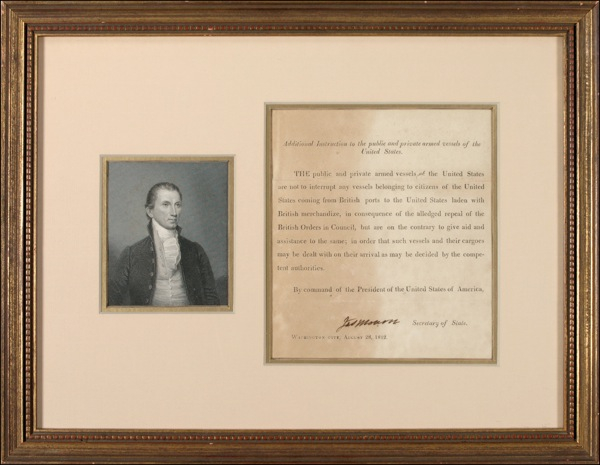 Additional Instruction to the public and private armed vessels of the
United States.
THE public and private armed vessels of the United States
are not to interrupt any vessels belonging to citizens of the United
States coming from British ports to the United States laden with
British merchandize, in consequence of the alledged repeal of the
British Orders in Council, but are on the contrary to give aid and
assistance to the same; in order that such vessels and their cargoes
may be dealt with on their arrival as may be decided by the compe-
tent authorities.
By command of the President of the United States of America,
Jas Monroe Secretary of State.
WASHINGTON CITY, AUGUST 28, 1812